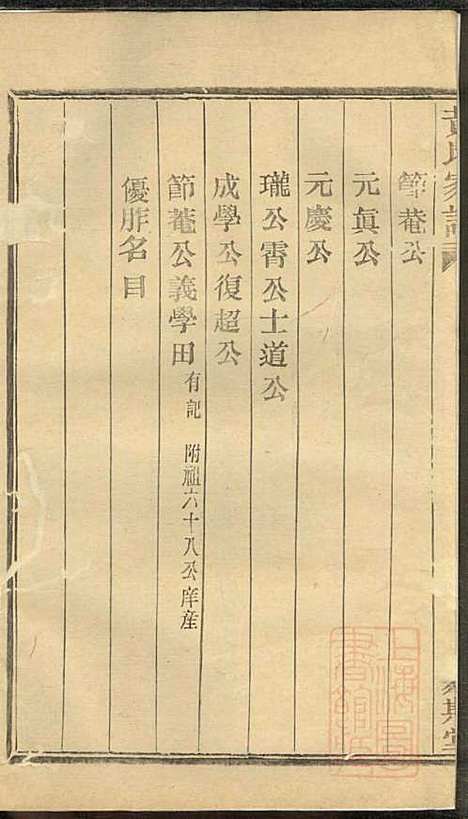 黃氏家譜
節菴公
元眞公
元慶公
瓏公霄公士道公
成學公復超公
節菴公義學田 有記 附祖六十八公庠産
優胙名目